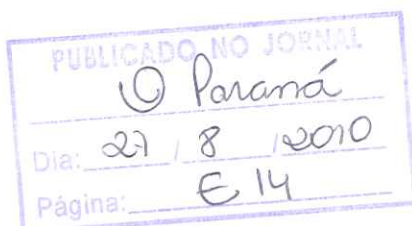 PUBLICADO NO JORNAL
O Paraná
Dia: 27 / 8 / 2010
Página: E 14